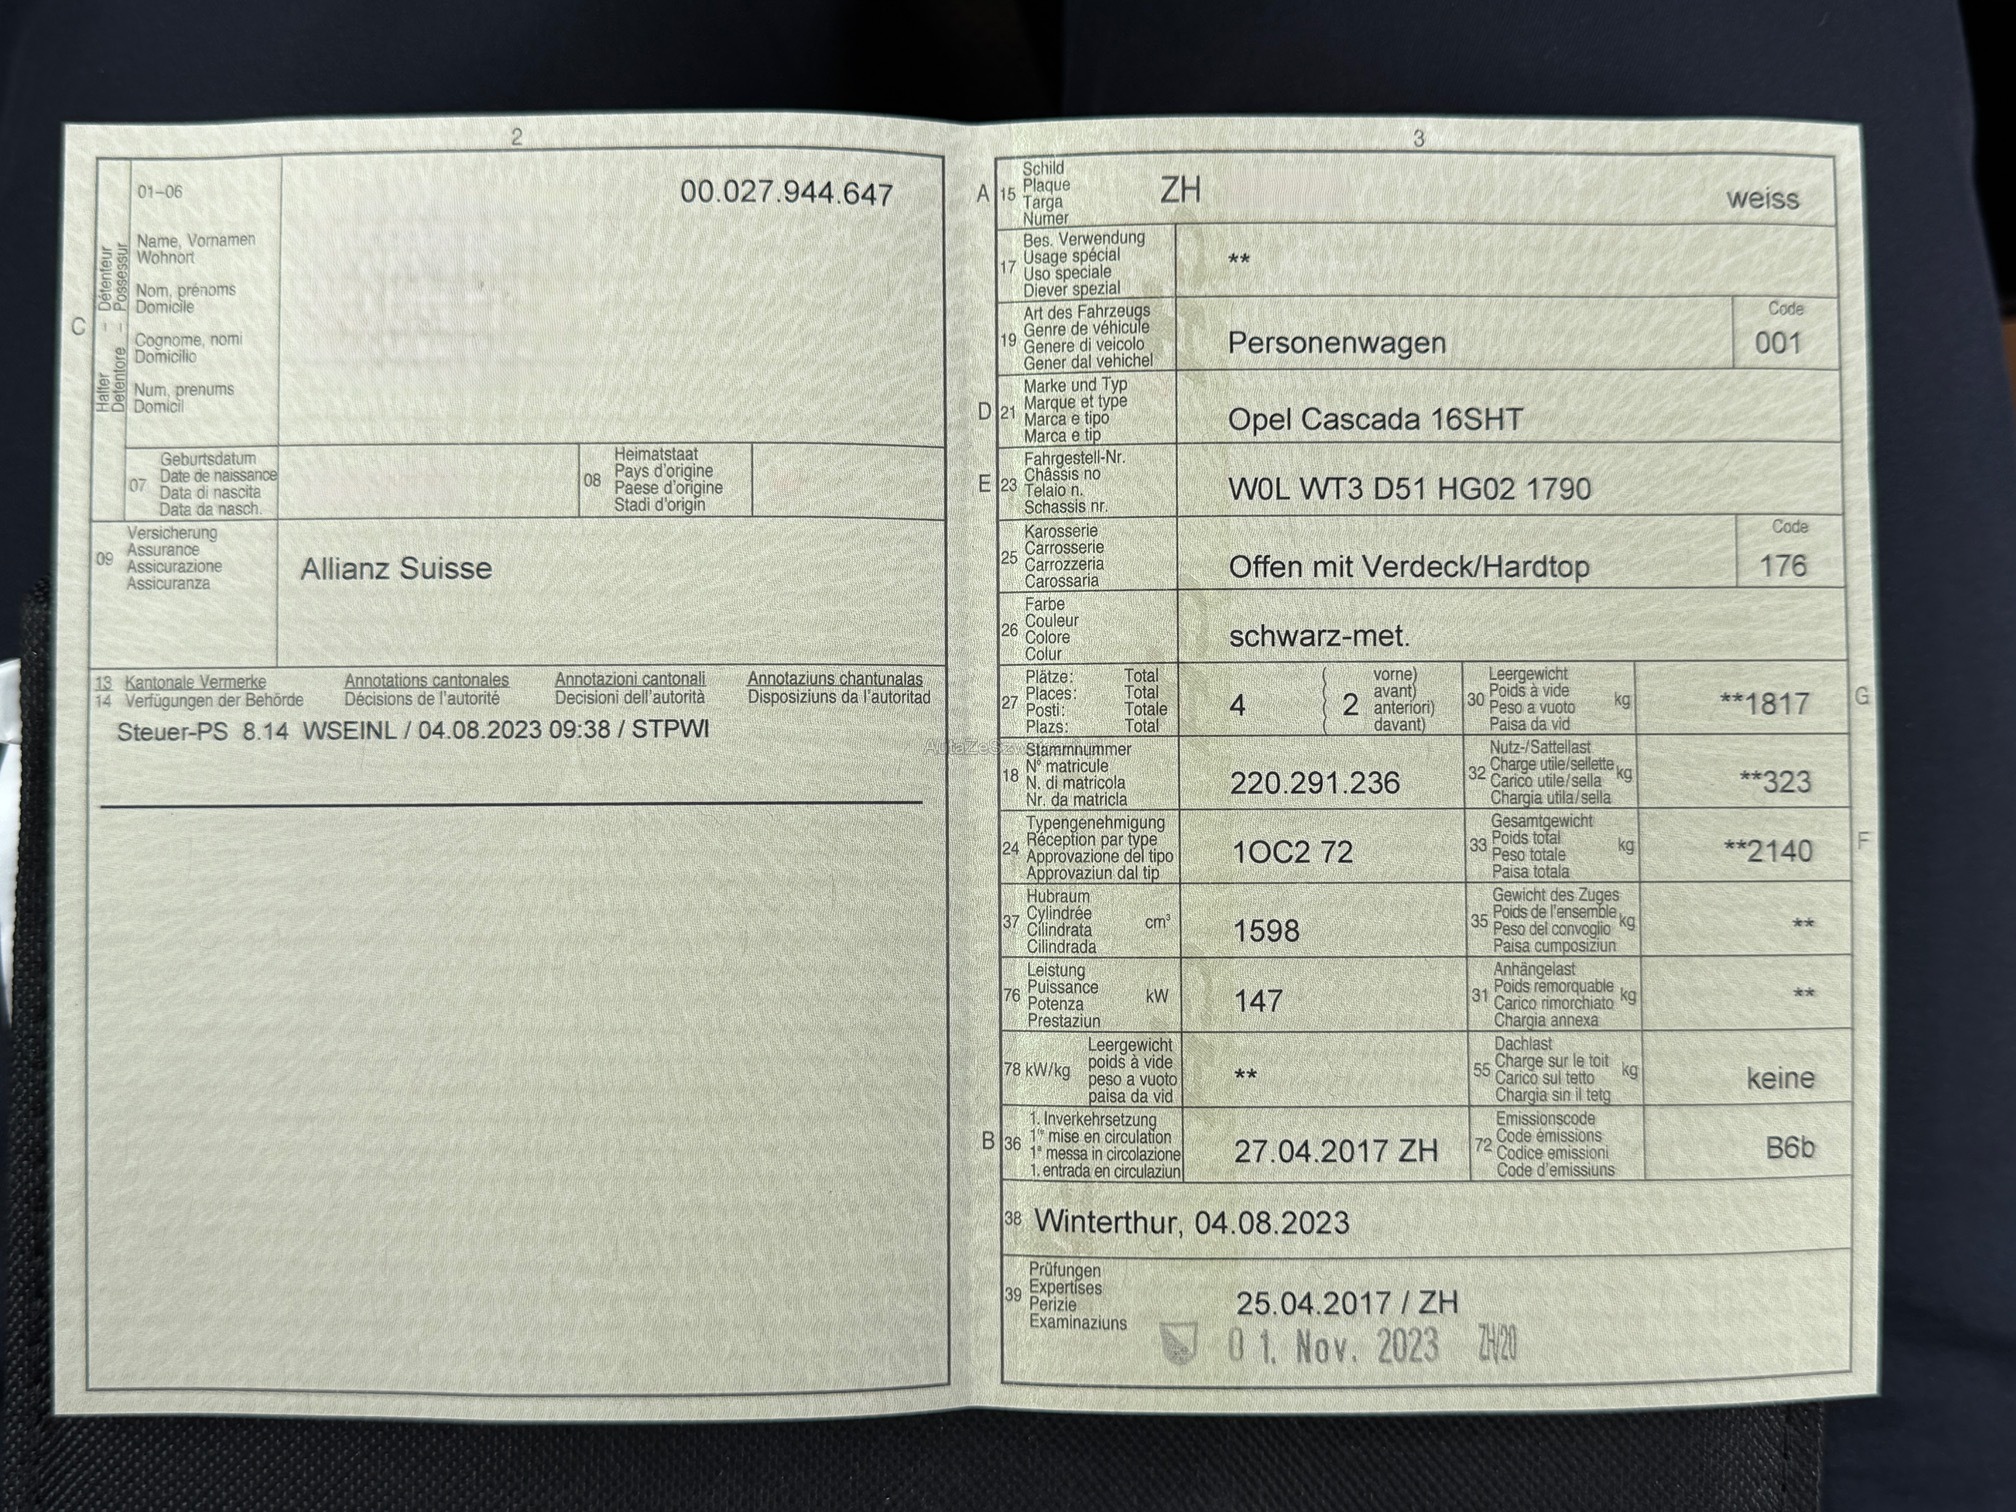 2
01–06
00.027.944.647
C
Halter – Détenteur
Detentore – Possessur
Name, Vornamen
Wohnort
Nom, prénoms
Domicile
Cognome, nomi
Domicilio
Num, prenums
Domicil
07
Geburtsdatum
Date de naissance
Data di nascita
Data da nasch.
08
Heimatstaat
Pays d'origine
Paese d'origine
Stadi d'origin
09
Versicherung
Assurance
Assicurazione
Assicuranza
Allianz Suisse
13 Kantonale Vermerke Annotations cantonales Annotazioni cantonali Annotaziuns chantunalas
14 Verfügungen der Behörde Décisions de l'autorité Decisioni dell'autorità Disposiziuns da l'autoritad
Steuer-PS 8.14 WSEINL / 04.08.2023 09:38 / STPWI
3
A 15
Schild
Plaque
Targa
Numer
ZH
weiss
17
Bes. Verwendung
Usage spécial
Uso speciale
Diever spezial
**
19
Art des Fahrzeugs
Genre de véhicule
Genere di veicolo
Gener dal vehichel
Personenwagen
Code
001
D 21
Marke und Typ
Marque et type
Marca e tipo
Marca e tip
Opel Cascada 16SHT
E 23
Fahrgestell-Nr.
Châssis no
Telaio n.
Schassis nr.
W0L WT3 D51 HG02 1790
25
Karosserie
Carrosserie
Carrozzeria
Carossaria
Offen mit Verdeck/Hardtop
Code
176
26
Farbe
Couleur
Colore
Colur
schwarz-met.
27
Plätze: Total
Places: Total
Posti: Totale
Plazs: Total
4
2
vorne)
avant)
anteriori)
davant)
30
Leergewicht
Poids à vide
Peso a vuoto
Paisa da vid
kg
**1817
G
18
Stammnummer
N° matricule
N. di matricola
Nr. da matricla
220.291.236
32
Nutz-/Sattellast
Charge utile/sellette
Carico utile/sella
Chargia utila/sella
kg
**323
24
Typengenehmigung
Réception par type
Approvazione del tipo
Approvaziun dal tip
1OC2 72
33
Gesamtgewicht
Poids total
Peso totale
Paisa totala
kg
**2140
F
37
Hubraum
Cylindrée
Cilindrata
Cilindrada
cm³
1598
35
Gewicht des Zuges
Poids de l'ensemble
Peso del convoglio
Paisa cumposiziun
kg
**
76
Leistung
Puissance
Potenza
Prestaziun
kW
147
31
Anhängelast
Poids remorquable
Carico rimorchiato
Chargia annexa
kg
**
78 kW/kg
Leergewicht
poids à vide
peso a vuoto
paisa da vid
**
55
Dachlast
Charge sur le toit
Carico sul tetto
Chargia sin il tetg
kg
keine
B 36
1. Inverkehrsetzung
1re mise en circulation
1a messa in circolazione
1. entrada en circulaziun
27.04.2017 ZH
72
Emissionscode
Code émissions
Codice emissioni
Code d'emissiuns
B6b
38 Winterthur, 04.08.2023
39
Prüfungen
Expertises
Perizie
Examinaziuns
25.04.2017 / ZH
01. Nov. 2023 ZH/20